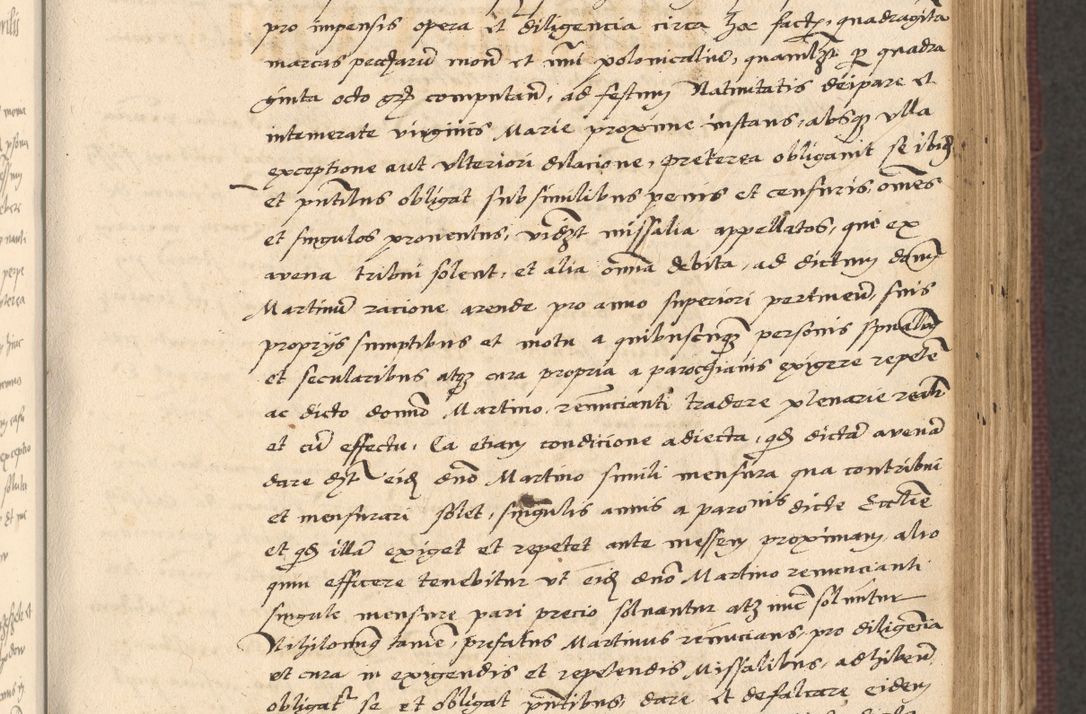 pro impensis opera et diligencia circa hoc factis, quadraginta
marcas pecuniarum mone et numi polonicalium, quamlibet per quadra
ginta octo gros computan, ad festum Natiuitatis deipare et
intemerate virginis Marie proxime instans, absque vlla
exceptione aut vlteriori dilacione, preterea obligauit se ibidem
et pntibus obligat sub similibus penis et censuris, omnes
et singulos prouentus, videlicet missalia appellatos, que ex
auena tribui solent, et alia omnia debita, ad dictum domnum
Martinum racione arende pro anno superiori pertinen, suis
proprys sumptibus et motu a quibuscunque personis spualibus
et secularibus atque cura propria a parochianis exigere repetere
ac dicto domno Martino renuncianti tradere plenarie realiter
et cum effectu, Ea etiam condicione adiecta, quod dictam auenam
dare eidem dno Martino simili mensura qua contribui
et mensurari solet, singulis annis a paronis dicte Ecclie
et quod illam exiget et repetet ante messem proximam, alio
quin efficere tenebitur vt eidem dno Martino renuncianti
singule mensure pari precio soluantur atque nunc soluuntur
Nihilominus tamen, prefatus Martinus renuncians, pro diligencia
et cura in exigendis et repetendis Missalibus, adhiben
obligat se et obligat pntibus, dare et defalcare eidem